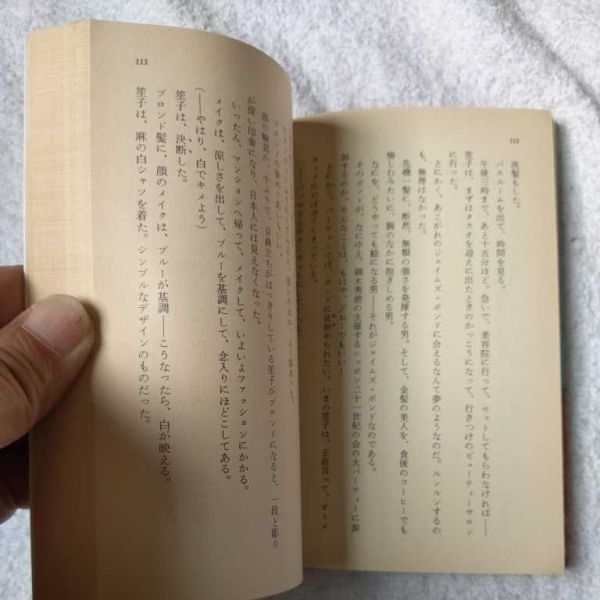 112
洗髪もした。
バスルームを出て、時間を見る。
午後三時まで、あと十五分ほど。急いで、美容院に行って、セットしてもらわなければ――
笙子は、まずはタカオを迎えに出たときのかっこうになって、行きつけのビューティーサロン
に行った。
とにかく、あこがれのジェイムズ・ボンドに会えるなんて夢のようなのだ。ルンルンするの
も、無理はなかった。
危機一髪に、断然、無類の強さを発揮する男。そして、金髪の美人を、食後のコーヒーでも
愉しむみたいに、腕のなかに抱きしめる男。
なにを、どうやっても絵になる男――それがジェイムズ・ボンドなのである。
そのボンドが、なにゆえ、御木秀徳の主催するニッポン二十一世紀の会の大パーティーに参
加するのか。そんなことは、もはや、どおーでもいい！
いまの笙子は、正直言って、オトメ
113
顔の輪郭が、小ぶりで、目鼻立ちがはっきりしている笙子がブロンドになると、一段と彫り
が深い印象になり、日本人には見えなくなった。
いったん、マンションへ帰って、メイクして、いよいよファッションにかかる。
メイクは、涼しさを出して、ブルーを基調にして、念入りにほどこしてある。
（――やはり、白でキメよう）
笙子は、決断した。
ブロンド髪に、顔のメイクは、ブルーが基調――こうなったら、白が映える。
笙子は、麻の白シャツを着た。シンプルなデザインのものだった。